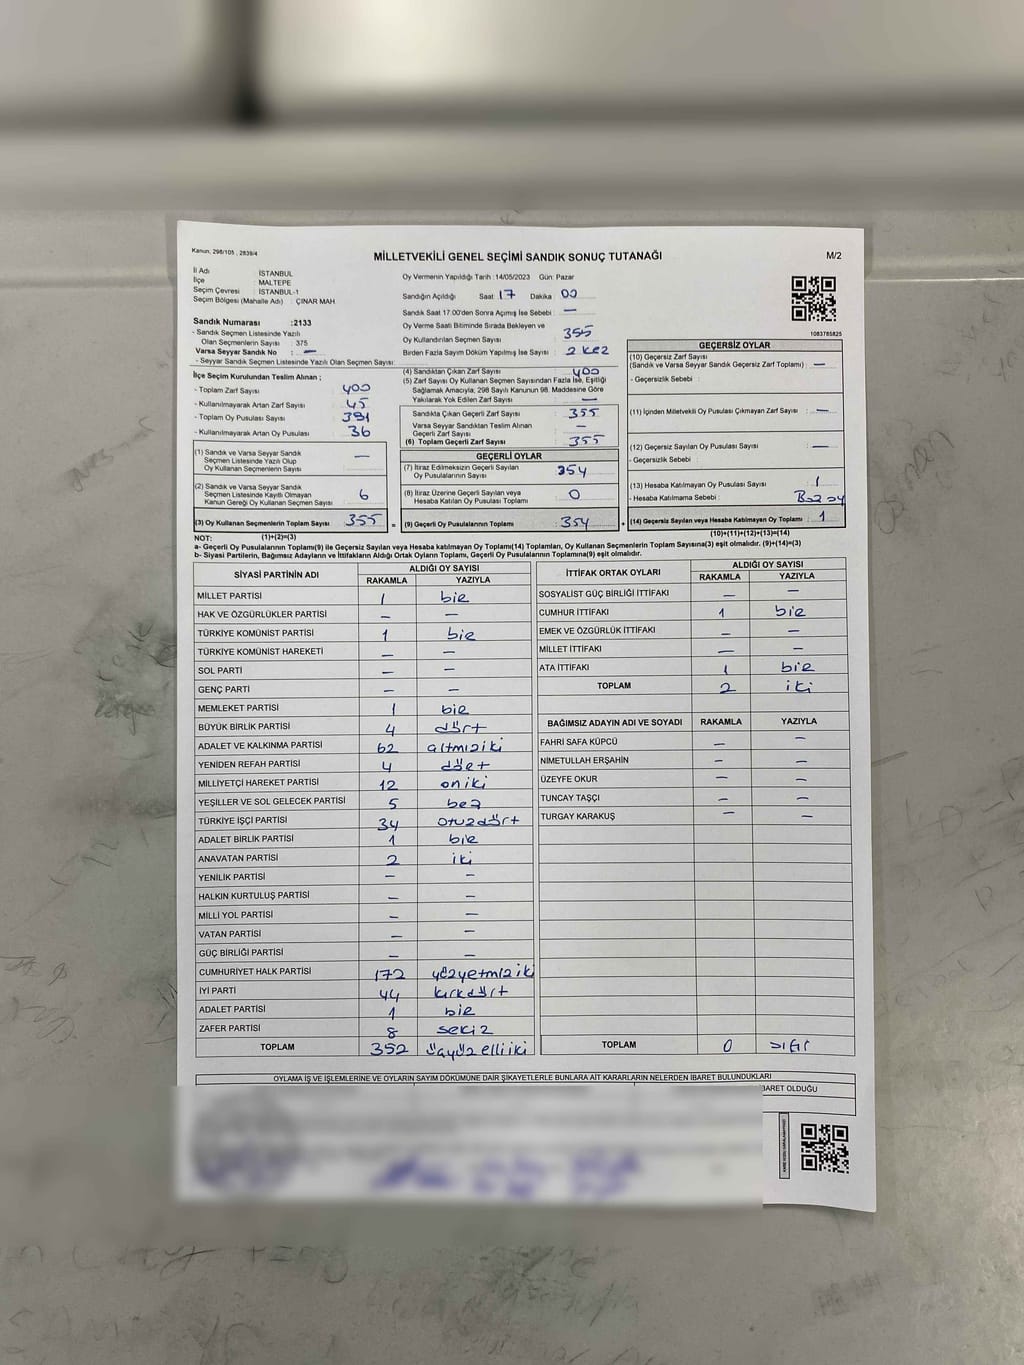 Kanun, 298/105 , 2839/4
MİLLETVEKİLİ GENEL SEÇİMİ SANDIK SONUÇ TUTANAĞI
M/2
İl Adı İSTANBUL
İlçe MALTEPE
Seçim Çevresi : İSTANBUL-1
Seçim Bölgesi (Mahalle Adı) : ÇINAR MAH
Sandık Numarası :2133
- Sandık Seçmen Listesinde Yazılı
Olan Seçmenlerin Sayısı : 375
Varsa Seyyar Sandık No : —
- Seyyar Sandık Seçmen Listesinde Yazılı Olan Seçmen Sayısı:
Oy Vermenin Yapıldığı Tarih :14/05/2023 Gün: Pazar
Sandığın Açıldığı Saat 17 Dakika 00
Sandık Saat 17.00'den Sonra Açımış İse Sebebi : —
Oy Verme Saati Bitiminde Sırada Bekleyen ve
Oy Kullandırılan Seçmen Sayısı : 355
Birden Fazla Sayım Döküm Yapılmış İse Sayısı : 2 kez
1083785825
İlçe Seçim Kurulundan Teslim Alınan ;
- Toplam Zarf Sayısı : 400
- Kullanılmayarak Artan Zarf Sayısı : 45
- Toplam Oy Pusulası Sayısı : 391
- Kullanılmayarak Artan Oy Pusulası : 36
(1) Sandık ve Varsa Seyyar Sandık
Seçmen Listesinde Yazılı Olup
Oy Kullanan Seçmenlerin Sayısı —
(2) Sandık ve Varsa Seyyar Sandık
Seçmen Listesinde Kayıtlı Olmayan
Kanun Gereği Oy Kullanan Seçmen Sayısı 6
(3) Oy Kullanan Seçmenlerin Toplam Sayısı 355 =
(1)+(2)=(3)
(4) Sandıktan Çıkan Zarf Sayısı : 400
(5) Zarf Sayısı Oy Kullanan Seçmen Sayısından Fazla İse, Eşitliği
Sağlamak Amacıyla, 298 Sayılı Kanunun 98. Maddesine Göre
Yakılarak Yok Edilen Zarf Sayısı : —
Sandıkta Çıkan Geçerli Zarf Sayısı : 355
Varsa Seyyar Sandıktan Teslim Alınan
Geçerli Zarf Sayısı : —
(6) Toplam Geçerli Zarf Sayısı : 355
GEÇERLİ OYLAR
(7) İtiraz Edilmeksizin Geçerli Sayılan
Oy Pusulalarının Sayısı : 354
(8) İtiraz Üzerine Geçerli Sayılan veya
Hesaba Katılan Oy Pusulası Toplamı : 0
(9) Geçerli Oy Pusulalarının Toplamı : 354 +
GEÇERSİZ OYLAR
(10) Geçersiz Zarf Sayısı
(Sandık ve Varsa Seyyar Sandık Geçersiz Zarf Toplamı) : —
- Geçersizlik Sebebi :
(11) İçinden Milletvekili Oy Pusulası Çıkmayan Zarf Sayısı : —
(12) Geçersiz Sayılan Oy Pusulası Sayısı : —
- Geçersizlik Sebebi :
(13) Hesaba Katılmayan Oy Pusulası Sayısı : 1
- Hesaba Katılmama Sebebi :
(14) Geçersiz Sayılan veya Hesaba Katılmayan Oy Toplamı : 1
(10)+(11)+(12)+(13)=(14)
NOT:
a- Geçerli Oy Pusulalarının Toplamı(9) ile Geçersiz Sayılan veya Hesaba katılmayan Oy Toplamı(14) Toplamları, Oy Kullanan Seçmenlerin Toplam Sayısına(3) eşit olmalıdır. (9)+(14)=(3)
b- Siyasi Partilerin, Bağımsız Adayların ve İttifakların Aldığı Ortak Oyların Toplamı, Geçerli Oy Pusulalarının Toplamına(9) eşit olmalıdır.
SİYASİ PARTİNİN ADI ALDIĞI OY SAYISI
RAKAMLA YAZIYLA
MİLLET PARTİSİ 1 bir
HAK VE ÖZGÜRLÜKLER PARTİSİ — —
TÜRKİYE KOMÜNİST PARTİSİ 1 bir
TÜRKİYE KOMÜNİST HAREKETİ — —
SOL PARTİ — —
GENÇ PARTİ — —
MEMLEKET PARTİSİ 1 bir
BÜYÜK BİRLİK PARTİSİ 4 dört
ADALET VE KALKINMA PARTİSİ 62 altmışiki
YENİDEN REFAH PARTİSİ 4 dört
MİLLİYETÇİ HAREKET PARTİSİ 12 oniki
YEŞİLLER VE SOL GELECEK PARTİSİ 5 beş
TÜRKİYE İŞÇİ PARTİSİ 34 otuzdört
ADALET BİRLİK PARTİSİ 1 bir
ANAVATAN PARTİSİ 2 iki
YENİLİK PARTİSİ — —
HALKIN KURTULUŞ PARTİSİ — —
MİLLİ YOL PARTİSİ — —
VATAN PARTİSİ — —
GÜÇ BİRLİĞİ PARTİSİ — —
CUMHURİYET HALK PARTİSİ 172 yüzyetmişiki
İYİ PARTİ 44 kırkdört
ADALET PARTİSİ 1 bir
ZAFER PARTİSİ 8 sekiz
TOPLAM 352 üçyüz elliiki
İTTİFAK ORTAK OYLARI ALDIĞI OY SAYISI
RAKAMLA YAZIYLA
SOSYALİST GÜÇ BİRLİĞİ İTTİFAKI — —
CUMHUR İTTİFAKI 1 bir
EMEK VE ÖZGÜRLÜK İTTİFAKI — —
MİLLET İTTİFAKI — —
ATA İTTİFAKI 1 bir
TOPLAM 2 iki
BAĞIMSIZ ADAYIN ADI VE SOYADI RAKAMLA YAZIYLA
FAHRİ SAFA KÜPCÜ — —
NİMETULLAH ERŞAHİN — —
ÜZEYFE OKUR — —
TUNCAY TAŞÇI — —
TURGAY KARAKUŞ — —
TOPLAM 0 sıfır
OYLAMA İŞ VE İŞLEMLERİNE VE OYLARIN SAYIM DÖKÜMÜNE DAİR ŞİKAYETLERLE BUNLARA AİT KARARLARIN NELERDEN İBARET BULUNDUKLARI
BARET OLDUĞU